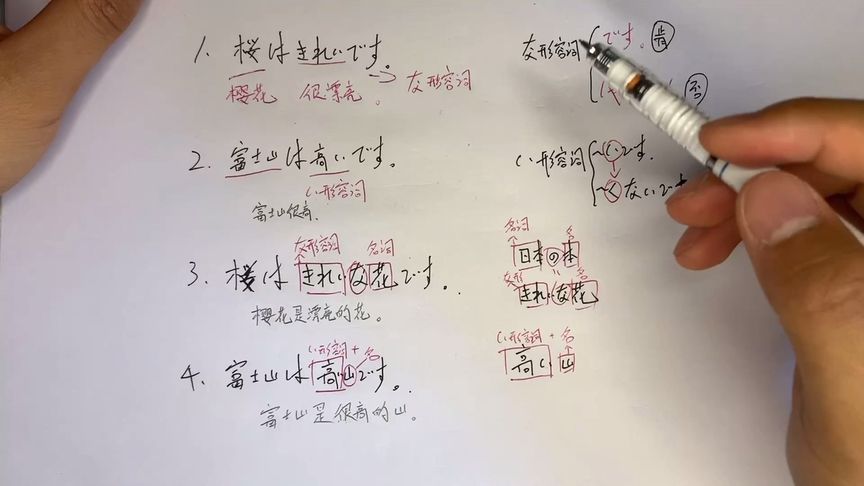 1、桜はきれいです。
樱花 很漂亮。→ な形容词
2、富士山は高いです。
い形容词
富士山很高。
な形容词 名词
3、桜はきれいな花です。
樱花是漂亮的花。
い形容词 + 名
4、富士山は高い山です。
富士山是很高的山。
な形容词 です。 肯
否
い形容词 ~いです。
~くないです
名词 名
日本の本
な形 名
きれいな花
い形容词 + 名
高い山